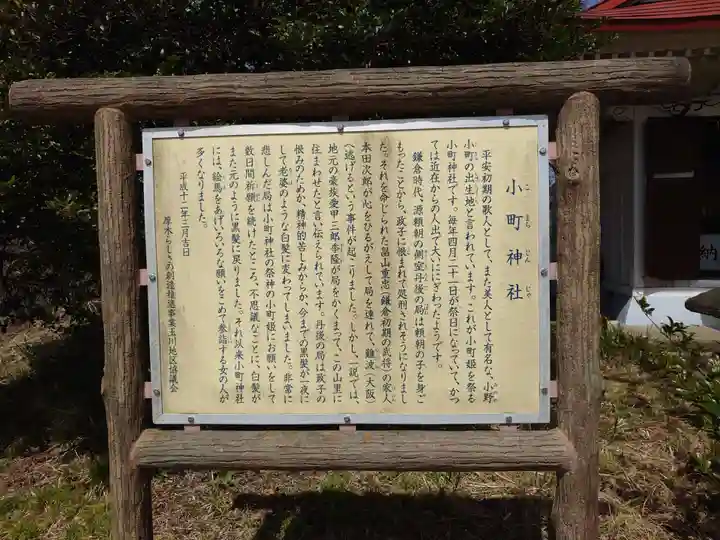 小町神社
こまちじんじゃ
平安初期の歌人として、また美人として有名な、小野
小町の出生地と言われています。これが小町姫を祭る
小町神社です。毎年四月二十一日が祭日になっていて、かつ
ては近在からの人出で大いににぎわったようです。
鎌倉時代、源頼朝の側室丹後の局は頼朝の子を身ご
もったことから、政子に恨まれて処刑されそうになりまし
た。それを命じられた畠山重忠(鎌倉初期の武将)の家人
本田次郎が心をひるがえして局を連れて、難波(大阪)
へ逃げるという事件が起こりました。しかし、一説では、
地元の豪族愛甲三郎季隆が局をかくまって、この山里に
住まわせたと言い伝えられています。丹後の局は政子の
恨みのためか、精神的苦しみからか、今までの黒髪が一夜に
して老婆のような白髪に変わってしまいました。非常に
悲しんだ局は小町神社の祭神の小町姫にお願いをして
数日間祈願を続けたところ、不思議なことに、白髪が
また元のように黒髪に戻りました。それ以来小町神社
には、絵馬をあげいろいろな願いをこめて参詣する女の人が
多くなりました。
平成十二年三月吉日
厚木らしさの創造推進事業玉川地区協議会
納